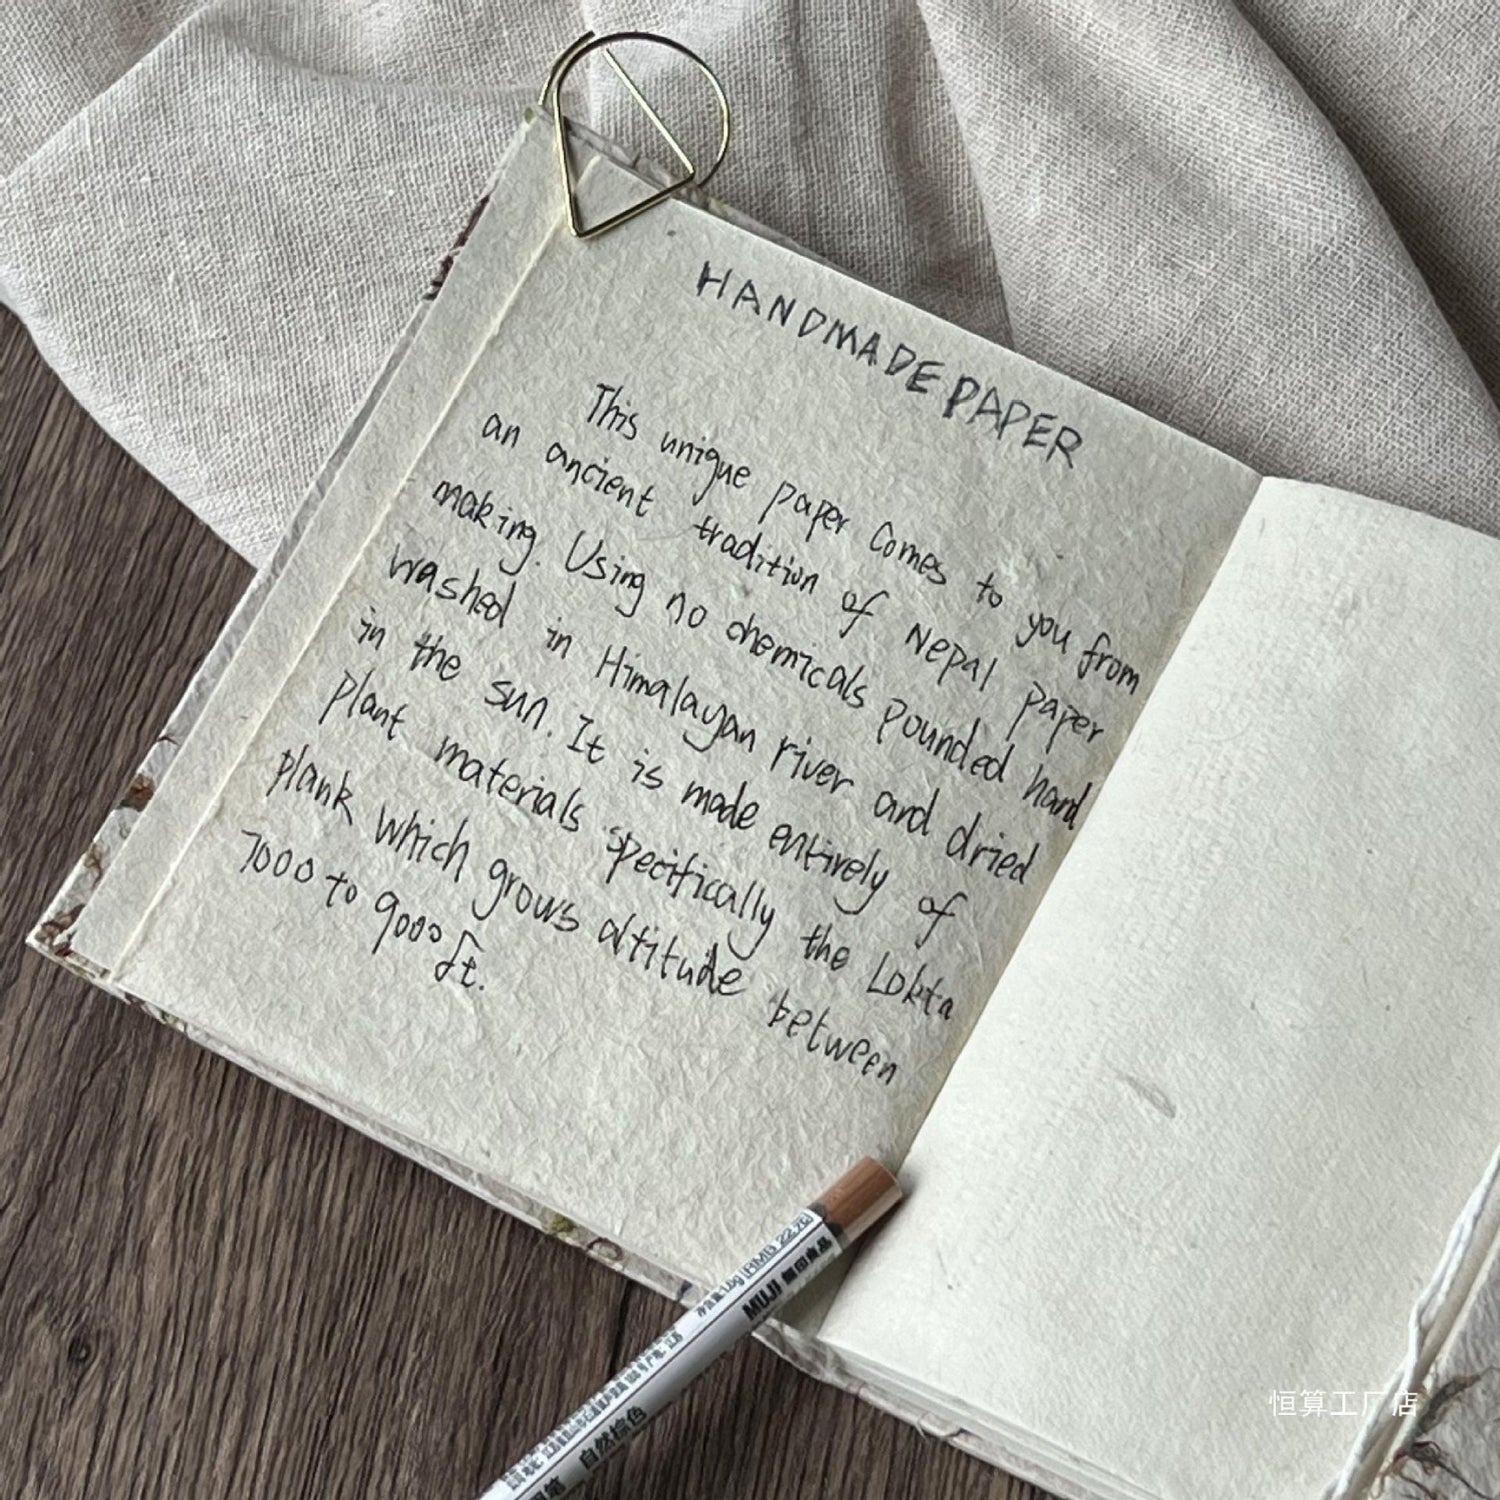 HANDMADE PAPER
This unique paper comes to you from
an ancient tradition of Nepal paper
making. Using no chemicals pounded hard
washed in Himalayan river and dried
in the sun. It is made entirely of
plant materials specifically the Lokta
plank which grows altitude between
7000 to 9000 ft.
RMB 22元
MUJI 無印良品
自然棕色
恒算工厂店